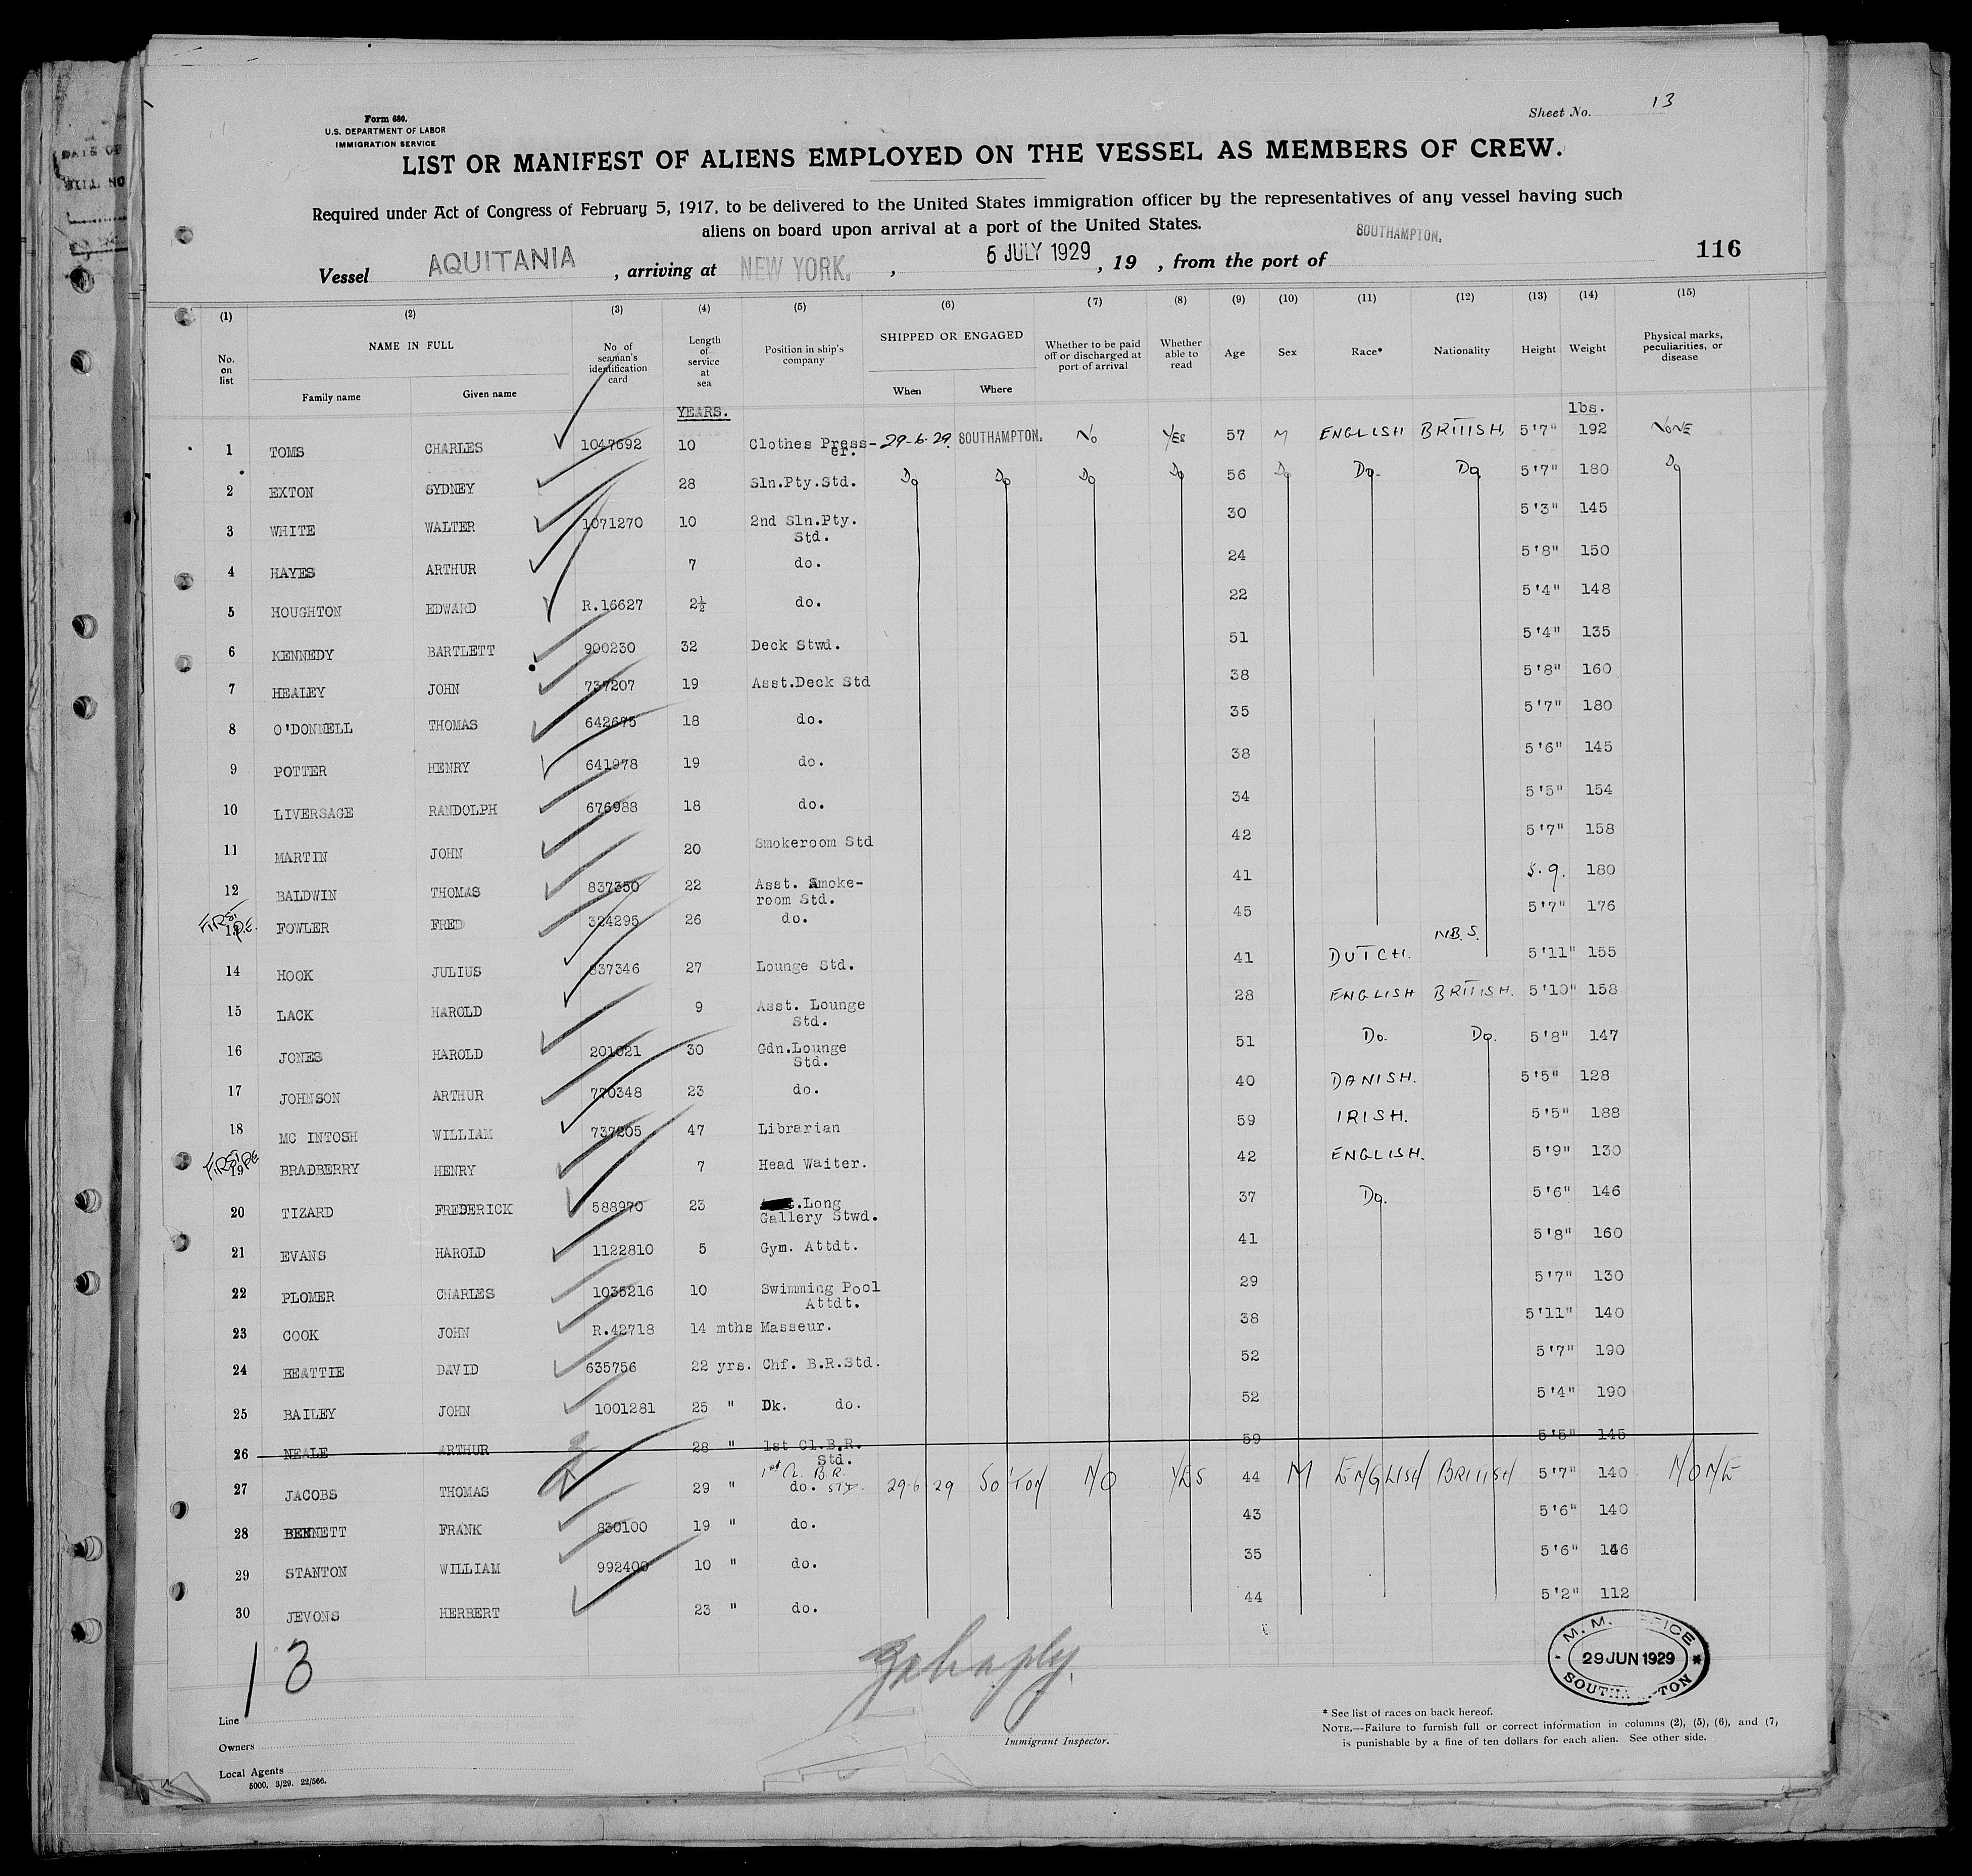 DATE OF
BILL NO
Sheet No. 13
Form 680.
U.S. DEPARTMENT OF LABOR
IMMIGRATION SERVICE
LIST OR MANIFEST OF ALIENS EMPLOYED ON THE VESSEL AS MEMBERS OF CREW.
Required under Act of Congress of February 5, 1917, to be delivered to the United States immigration officer by the representatives of any vessel having such
aliens on board upon arrival at a port of the United States.
Vessel AQUITANIA, arriving at NEW YORK., 6 JULY 1929, 19 , from the port of SOUTHAMPTON. 116
(1) (2) (3) (4) (5) (6) (7) (8) (9) (10) (11) (12) (13) (14) (15)
No. on list NAME IN FULL Family name Given name No. of seaman's identification card Length of service at sea Position in ship's company SHIPPED OR ENGAGED When Where Whether to be paid off or discharged at port of arrival Whether able to read Age Sex Race* Nationality Height Weight Physical marks, peculiarities, or disease
YEARS. lbs.
1 TOMS CHARLES 1047692 10 Clothes Press-er. 29-6-29. SOUTHAMPTON. No YES 57 M ENGLISH BRITISH, 5'7" 192 NONE
2 EXTON SYDNEY 28 Sln.Pty.Std. Do Do Do Do 56 Do Do. Do 5'7" 180 Do
3 WHITE WALTER 1071270 10 2nd Sln.Pty. Std. 30 5'3" 145
4 HAYES ARTHUR 7 do. 24 5'8" 150
5 HOUGHTON EDWARD R.16627 2½ do. 22 5'4" 148
6 KENNEDY BARTLETT 900230 32 Deck Stwd. 51 5'4" 135
7 HEALEY JOHN 737207 19 Asst.Deck Std 38 5'8" 160
8 O'DONNELL THOMAS 642675 18 do. 35 5'7" 180
9 POTTER HENRY 641978 19 do. 38 5'6" 145
10 LIVERSAGE RANDOLPH 676988 18 do. 34 5'5" 154
11 MARTIN JOHN 20 Smokeroom Std 42 5'7" 158
12 BALDWIN THOMAS 837350 22 Asst. Smoke-room Std. 41 5.9. 180
FIRST P.E. 13 FOWLER FRED 324295 26 do. 45 5'7" 176
14 HOOK JULIUS 837346 27 Lounge Std. 41 DUTCH. N.B.S. 5'11" 155
15 LACK HAROLD 9 Asst. Lounge Std. 28 ENGLISH BRITISH. 5'10" 158
16 JONES HAROLD 201021 30 Gdn.Lounge Std. 51 Do. Do. 5'8" 147
17 JOHNSON ARTHUR 770348 23 do. 40 DANISH. 5'5" 128
18 MC INTOSH WILLIAM 737205 47 Librarian 59 IRISH. 5'5" 188
FIRST PE 19 BRADBERRY HENRY 7 Head Waiter. 42 ENGLISH. 5'9" 130
20 TIZARD FREDERICK 588970 23 .Long Gallery Stwd. 37 Do. 5'6" 146
21 EVANS HAROLD 1122810 5 Gym. Attdt. 41 5'8" 160
22 PLOMER CHARLES 1035216 10 Swimming Pool Attdt. 29 5'7" 130
23 COOK JOHN R.42718 14 mths Masseur. 38 5'11" 140
24 BEATTIE DAVID 635756 22 yrs. Chf. B.R.Std. 52 5'7" 190
25 BAILEY JOHN 1001281 25 " Dk. do. 52 5'4" 190
26 NEALE ARTHUR 28 " 1st Cl.B.R. Std. 59 5'5" 145
27 JACOBS THOMAS 29 " 1st Cl. B.R. do. STD. 29-6-29 SO'TON NO YES 44 M ENGLISH BRITISH 5'7" 140 NONE
28 BENNETT FRANK 830100 19 " do. 43 5'6" 140
29 STANTON WILLIAM 992400 10 " do. 35 5'6" 146
30 JEVONS HERBERT 23 " do. 44 5'2" 112
13
M. M. OFFICE
29 JUN 1929
SOUTHAMPTON
Line
Owners
Local Agents
5000. 3/29. 22/566.
Immigrant Inspector.
* See list of races on back hereof.
NOTE.—Failure to furnish full or correct information in columns (2), (5), (6), and (7)
is punishable by a fine of ten dollars for each alien. See other side.